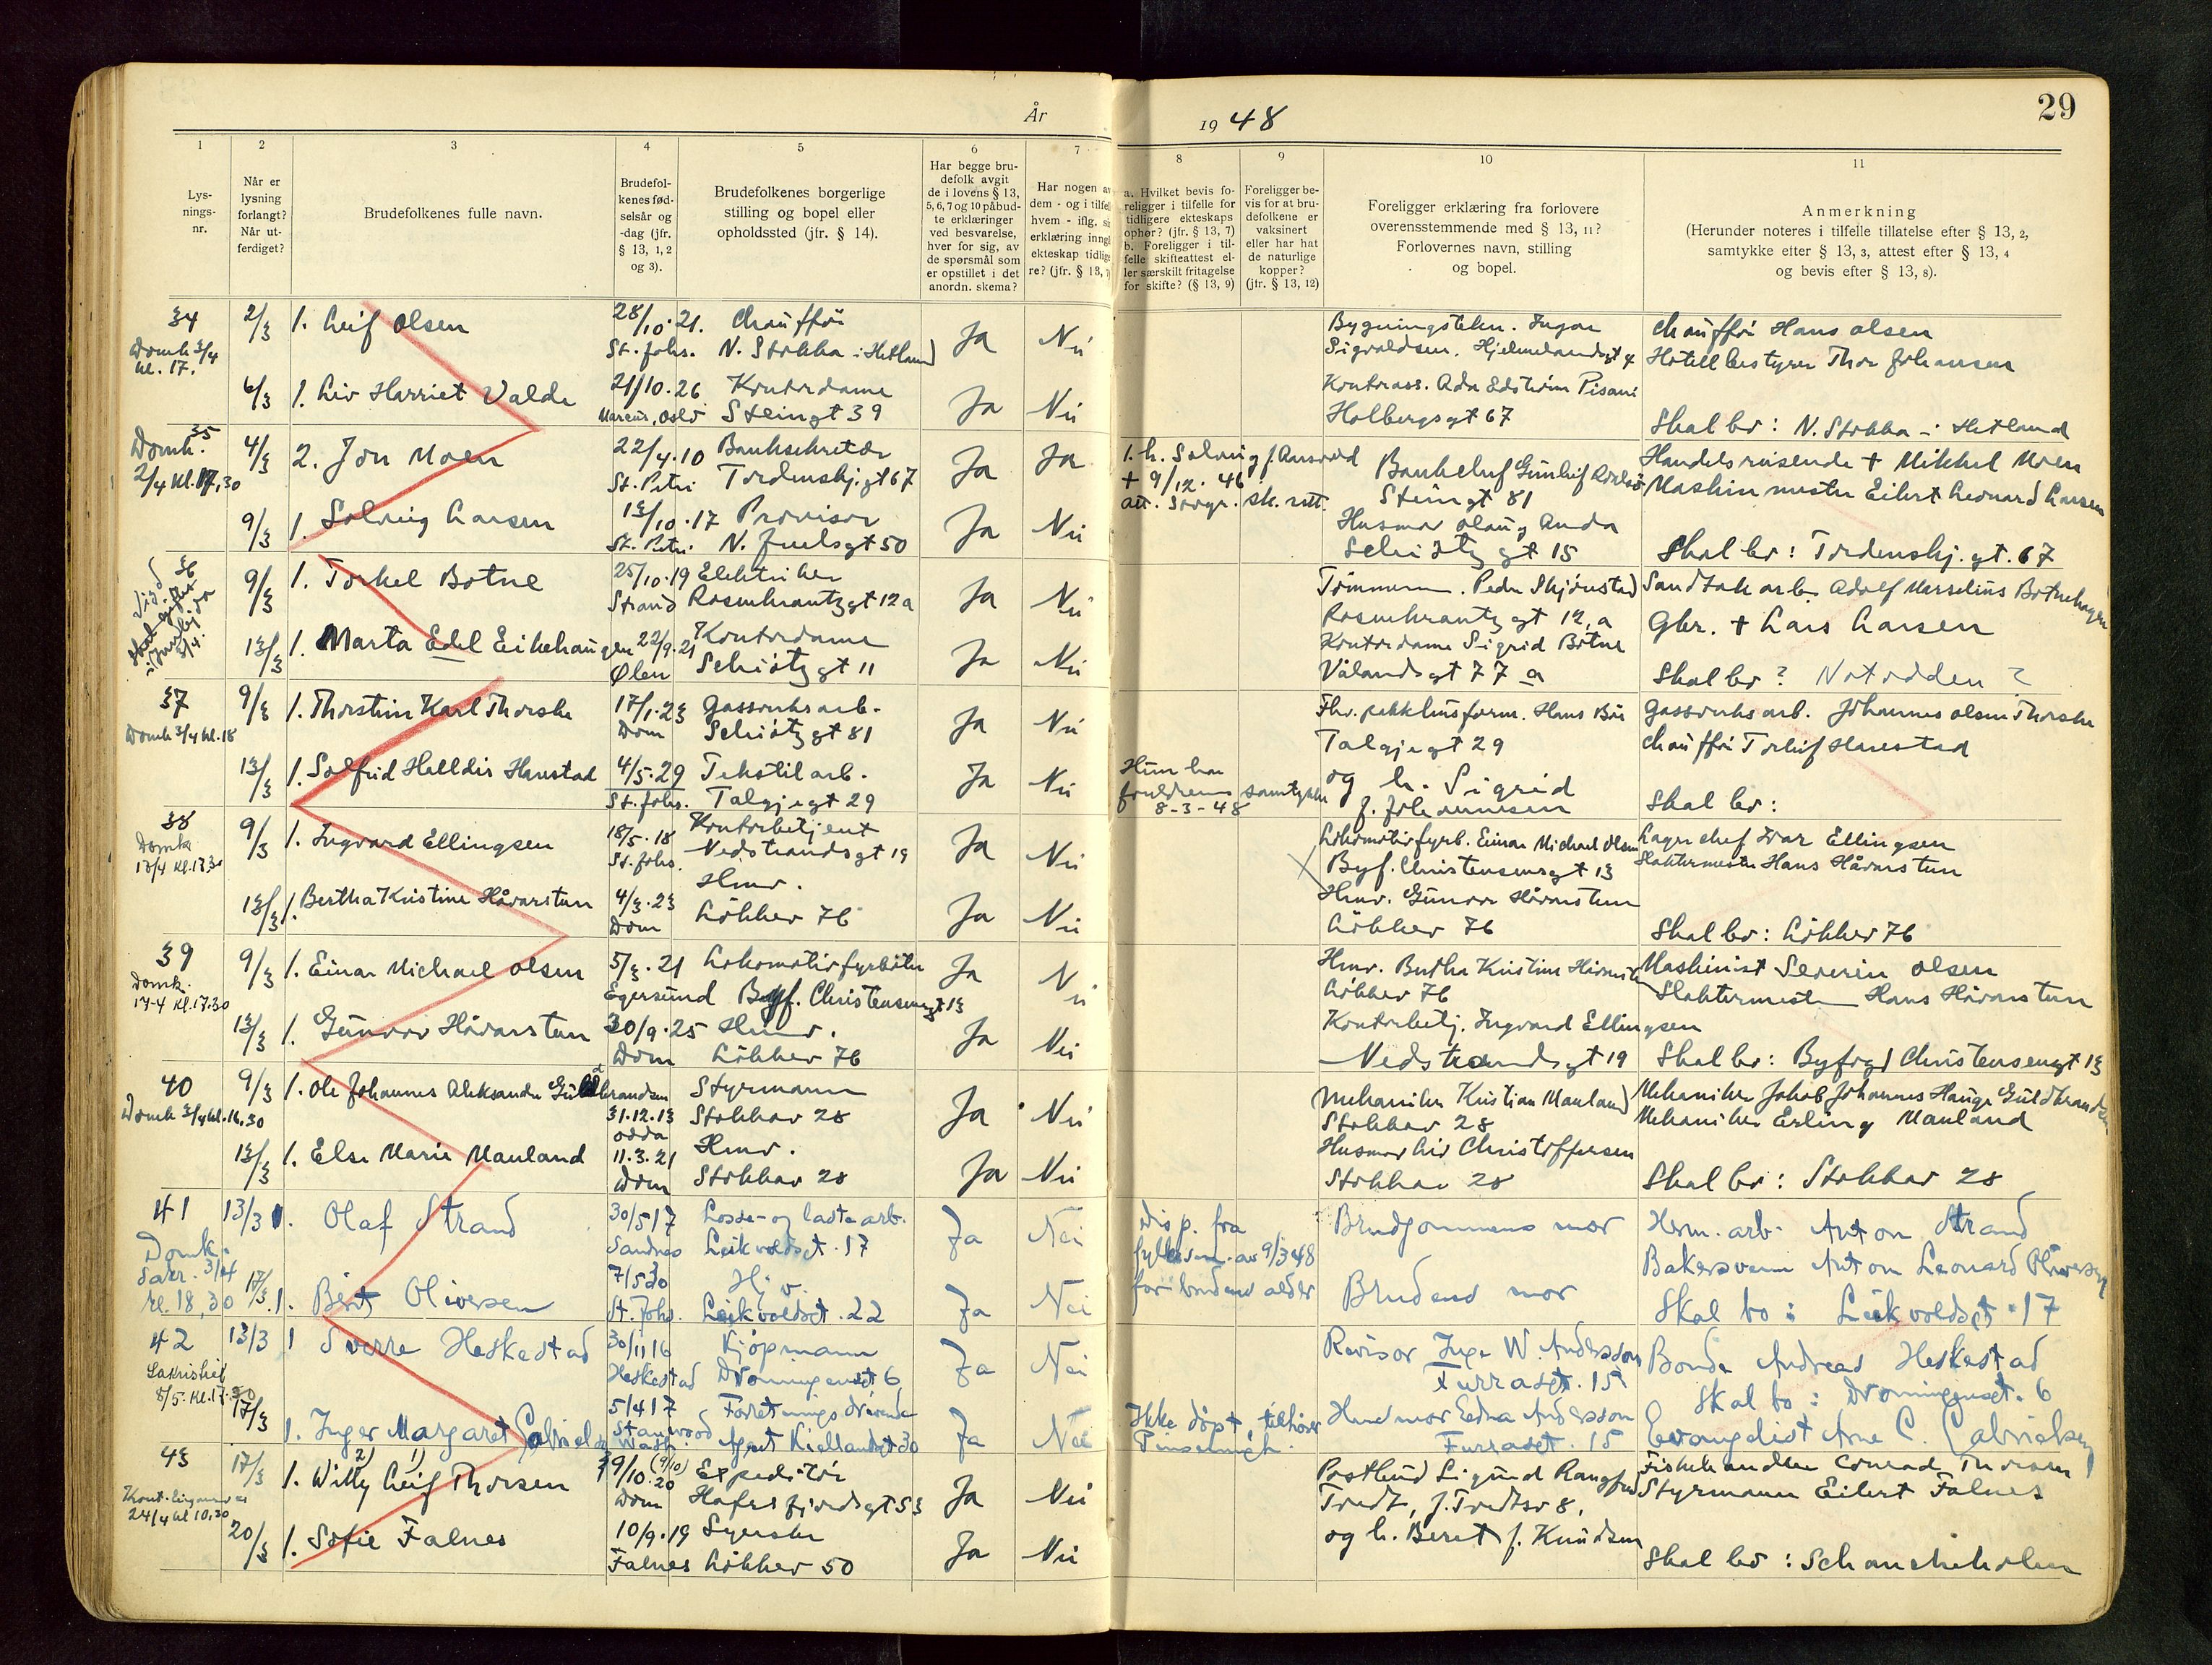 År
1948
29
1
2
3
4
5
6
7
8
9
10
11
Lys-
nings-
nr.
Når er
lysning
forlangt?
Når ut-
ferdiget?
Brudefolkenes fulle navn.
Brudefol-
kenes fød-
selsår og
-dag (jfr.
§ 13, 1, 2
og 3).
Brudefolkenes borgerlige
stilling og bopel eller
opholdssted (jfr. § 14).
Har begge bru-
defolk avgit
de i lovens § 13,
5, 6, 7 og 10 påbud-
te erklæringer
ved besvarelse,
hver for sig, av
de spørsmål som
er opstillet i det
anordn. skema?
Har nogen av
dem - og i tilfel
hvem - iflg. si
erklæring inngå
ekteskap tidlige
re? (jfr. § 13, 7)
a. Hvilket bevis fo-
religger i tilfelle for
tidligere ekteskaps
ophør? (jfr. § 13, 7)
b. Foreligger i til-
felle skifteattest el-
ler særskilt fritagelse
for skifte? (§ 13, 9)
Foreligger be-
vis for at bru-
defolkene er
vaksinert
eller har hat
de naturlige
kopper?
(jfr. § 13, 12)
Foreligger erklæring fra forlovere
overensstemmende med § 13, 11?
Forlovernes navn, stilling
og bopel.
Anmerkning
(Herunder noteres i tilfelle tillatelse efter § 13, 2,
samtykke efter § 13, 3, attest efter § 13, 4
og bevis efter § 13, 8).
34
Domk 3/4
kl. 17.
2/3 1. Leif Olsen 28/10.21. Chauffør Ja Nei
St. Johs. N. Stokka i Hetland
Bygningstekn. Ingar
Sigvaldsen. Hjelmelandsgt 4
Chauffør Hans Olsen
Hotellbestyrer Thor Johansen
6/3 1. Liv Harriet Valde 21/10.26 Kontordame Ja Nei
Oslo Steingt 39
Kontorass. Ada Edstrøm Pisani
Holbergsgt 67
Skal bo: N. Stokka i Hetland
35
Domk.
2/4 Kl. 17,30
4/3 2. Jon Moen 22/4.10 Banksekretær Ja Ja
St. Petri Tordenskj.gt 67
1. h. Solveig f. Aarsvold
+ 9/12.46
att. Stvgr. sk. rett.
Bankchef Gunleif
Steingt 81
Handelsreisende + Mikkel Moen
Maskinmester Eilert Leonard Larsen
9/3 1. Solveig Larsen 13/10.17 Provisor Ja Nei
St. Petri. N. Juelsgt 50
Husmor Olaug Anda
Schiøtzgt 15
Skal bo: Tordenskj.gt. 67
36
9/3 1. Torkel Botne 25/10.19 Elektriker Ja Nei
Strand Rosenkrantzgt 12a
Tømmerm. Peder Skjørestad
Rosenkrantzgt 12.a
Sandtak arb. Adolf Marselius Botnehagen
13/3 1. Marta Edel Eikehaugen 22/9.21 Kontordame Ja Nei
Ølen Schiøtzgt 11
Kontordame Sigrid Botne
Vålandsgt 77 a
Gbr. + Lars Larsen
Skal bo? Notodden?
37
Domk 3/4 kl. 18
9/3 1. Thorstein Karl Thorske 17/1.23 Gassverksarb. Ja Nei
Dom Schiøtzgt 81
Fhv. pakkhusform. Hans Bøe
Talgjegt 29
Gassverksarb. Johannes Olsen Thorske
Chauffør Torleif Harestad
13/3 1. Solfrid Halldis Harestad 4/5.29 Tekstilarb. Ja Nei
St. Johs. Talgjegt 29
Hun har
foreldrenes samtykke
8-3-48
og h. Sigrid
f. Johannesen
Skal bo:
38
Domk
17/4 Kl. 17.30
9/3 1. Ingvard Ellingsen 18/5.18 Kontorbetjent Ja Nei
St. Johs. Nedstrandsgt 19
Lokomotivfyrb. Einar Michael Olsen
Byf. Christensensgt 13
Lagerchef Ivar Ellingsen
Slaktermester Hans Håvarstun
13/3 1. Bertha Kristine Håvarstun 4/3.23 Hmv. Ja Nei
Dom Løkkev 76
Hmv. Gunvor Håvarstun
Løkkev 76
Skal bo: Løkkev 76
39
Domk.
17-4 Kl. 17.30
9/3 1. Einar Michael Olsen 5/3.21 Lokomotivfyrbøter Ja Nei
Egersund Byf. Christensensgt 13
Hmv. Bertha Kristine Håvarstun
Løkkev 76
Maskinist Severin Olsen
Slaktermester Hans Håvarstun
13/3 1. Gunvor Håvarstun 30/9.25 Hmv. Ja Nei
Dom Løkkev 76
Kontorbetj. Ingvard Ellingsen
Nedstrandsgt 19
Skal bo: Byfogd Christensensgt 13
40
Domk 3/4 kl. 16.30
9/3 1. Ole Johannes Aleksander Guldbrandsen Styrmann Ja Nei
31.12.13 Stokkav 28
Odda
Mekaniker Kristian Mauland
Stokkav 28
Mekaniker Jakob Johannes Hauge Guldbrandsen
Mekaniker Erling Mauland
13/3 1. Else Marie Mauland 11.3.21 Hmv. Ja Nei
Dom Stokkav 28
Husmor Liv Christoffersen
Stokkav 28
Skal bo: Stokkav 28
41
Domk.
Sakr. 3/4
kl. 18,30
13/3 1. Olaf Strand 30/5 17 Losse- og lastearb. Ja Nei
Sandnes Leikvoldsgt. 17
Disp. fra
fylkesm. av 9/3 48
for brudens alder
Brudgommens mor
Herm. arb. Anton Strand
Bakersvenn Anton Leonard Oliversen
17/3 1. Berit Oliversen 7/5 30 Hj.v. Ja Nei
St. Johs. Leikvoldsgt. 22
Brudens mor
Skal bo: Leikvoldsgt. 17
42
Sakristiet
8/5. Kl. 17.30
13/3 1 Sverre Heskestad 30/11 16 Kjøpmann Ja Nei
Heskestad Dronningensgt 6
Revisor Inge W. Andersson
Furrasgt. 15
Bonde Andreas Heskestad
Skal bo: Dronningensgt. 6
17/3 1. Inger Margaret Gabrielsen 5/4 17 Forretningsdrivende Ja Nei
Stanwood Wash. Agent Kiellandsgt 30
Ikke døpt, tilhører
Pinsemenigh.
Husmor Edna Andersson
Furrasgt. 15
Evangelist Arne C. Gabrielsen
43
24/4 kl 10,30
17/3 1. Willy Leif Thorsen 9/10.20 (9/10) Expeditør Ja Nei
2) 1)
Dom Hafrsfjordsgt 53
Postbud Sigurd Rangfred
Tvedt, J. Tvedtsv 8,
Fiskehandler Conrad Thorsen
Styrmann Eilert Falnes
20/3 1. Sofie Falnes 10/9.19 Syerske Ja Nei
Falnes Løkkev 50
og h. Beret f. Knudsen
Skal bo: Schancheholen